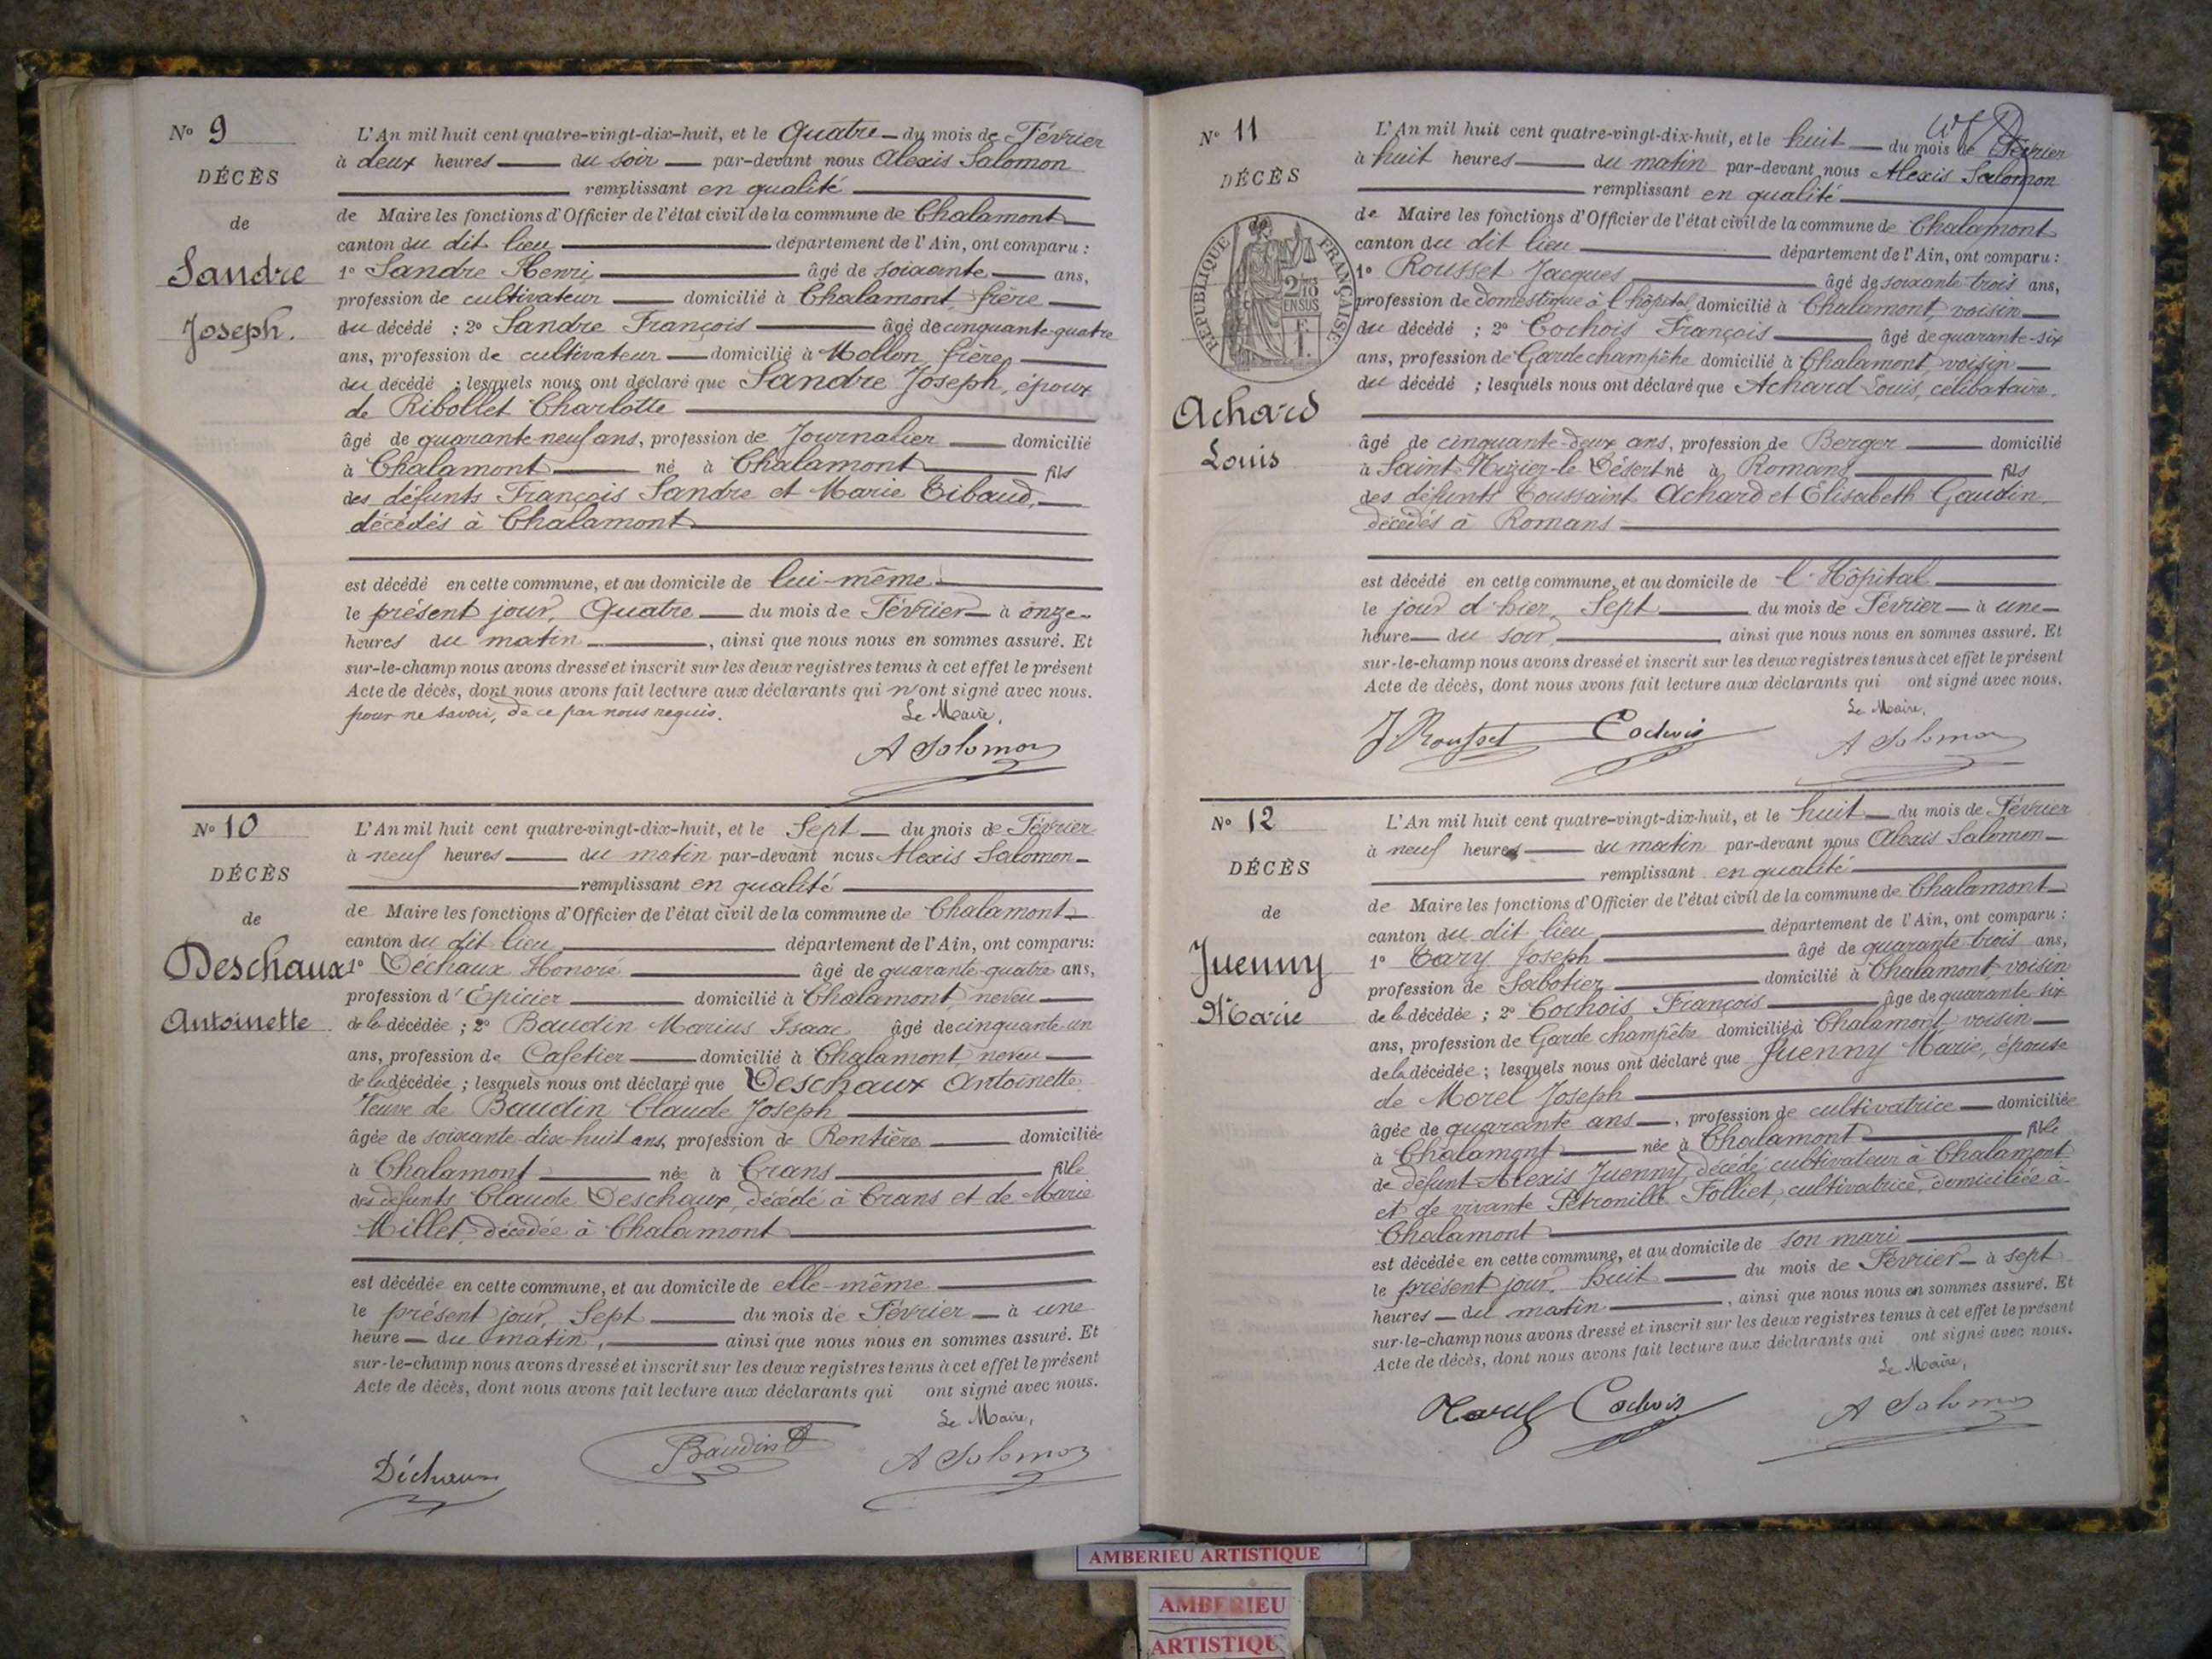 N° 9
DÉCÈS
de
Sandre
Joseph.
L'An mil huit cent quatre-vingt-dix-huit, et le Quatre du mois de Février
à deux heures du soir par-devant nous Alexis Salomon
remplissant en qualité
de Maire les fonctions d'Officier de l'état civil de la commune de Chalamont
canton du dit lieu département de l'Ain, ont comparu :
1° Sandre Henri âgé de soixante ans,
profession de cultivateur domicilié à Chalamont, frère
du décédé ; 2° Sandre François âgé de cinquante-quatre
ans, profession de cultivateur domicilié à Mollon, frère
du décédé ; lesquels nous ont déclaré que Sandre Joseph, époux
de Ribollet Charlotte
âgé de quarante-neuf ans, profession de Journalier domicilié
à Chalamont né à Chalamont fils
des défunts François Sandre et Marie Tibaud,
décédés à Chalamont
est décédé en cette commune, et au domicile de lui-même
le présent jour, Quatre du mois de Février à onze
heures du matin, ainsi que nous nous en sommes assuré. Et
sur-le-champ nous avons dressé et inscrit sur les deux registres tenus à cet effet le présent
Acte de décès, dont nous avons fait lecture aux déclarants qui n'ont signé avec nous.
pour ne savoir, de ce par nous requis. Le Maire,
A Salomon
N° 10
DÉCÈS
de
Deschaux
Antoinette
L'An mil huit cent quatre-vingt-dix-huit, et le Sept du mois de Février
à neuf heures du matin par-devant nous Alexis Salomon
remplissant en qualité
de Maire les fonctions d'Officier de l'état civil de la commune de Chalamont
canton du dit lieu département de l'Ain, ont comparu:
1° Déchaux Honoré âgé de quarante-quatre ans,
profession d'Epicier domicilié à Chalamont, neveu
de la décédée ; 2° Baudin Marius Isaac âgé de cinquante-un
ans, profession de Cafetier domicilié à Chalamont, neveu
de la décédée ; lesquels nous ont déclaré que Deschaux Antoinette
Veuve de Baudin Claude Joseph
âgée de soixante-dix-huit ans, profession de Rentière domiciliée
à Chalamont née à Crans fille
des défunts Claude Deschaux, décédé à Crans et de Marie
Millet, décédée à Chalamont
est décédée en cette commune, et au domicile de elle-même
le présent jour, Sept du mois de Février à une
heure du matin, ainsi que nous nous en sommes assuré. Et
sur-le-champ nous avons dressé et inscrit sur les deux registres tenus à cet effet le présent
Acte de décès, dont nous avons fait lecture aux déclarants qui ont signé avec nous.
Le Maire,
Déchaux Baudin A Salomon
N° 11
DÉCÈS
RÉPUBLIQUE FRANÇAISE
2/10 EN SUS
1 F.
Achard
Louis
L'An mil huit cent quatre-vingt-dix-huit, et le huit du mois de Février
à huit heures du matin par-devant nous Alexis Salomon
remplissant en qualité
de Maire les fonctions d'Officier de l'état civil de la commune de Chalamont
canton du dit lieu département de l'Ain, ont comparu :
1° Rousset Jacques âgé de soixante-trois ans,
profession de domestique à l'hôpital, domicilié à Chalamont, voisin
du décédé ; 2° Cochois François âgé de quarante-six
ans, profession de Garde champêtre domicilié à Chalamont, voisin
du décédé ; lesquels nous ont déclaré que Achard Louis, célibataire
âgé de cinquante-deux ans, profession de Berger domicilié
à Saint-Nizier-le-Désert né à Romans fils
des défunts Toussaint Achard et Elisabeth Gaudin
décédés à Romans
est décédé en cette commune, et au domicile de l'Hôpital
le jour d'hier, Sept du mois de Février à une
heure du soir, ainsi que nous nous en sommes assuré. Et
sur-le-champ nous avons dressé et inscrit sur les deux registres tenus à cet effet le présent
Acte de décès, dont nous avons fait lecture aux déclarants qui ont signé avec nous.
Le Maire,
J. Rousset Cochois A Salomon
N° 12
DÉCÈS
de
Juenny
Marie
L'An mil huit cent quatre-vingt-dix-huit, et le huit du mois de Février
à neuf heures du matin par-devant nous Alexis Salomon
remplissant en qualité
de Maire les fonctions d'Officier de l'état civil de la commune de Chalamont
canton du dit lieu département de l'Ain, ont comparu :
1° Tary Joseph âgé de quarante-trois ans,
profession de Sabotier domicilié à Chalamont, voisin
de la décédée ; 2° Cochois François âgé de quarante-six
ans, profession de Garde champêtre domicilié à Chalamont, voisin
de la décédée ; lesquels nous ont déclaré que Juenny Marie, épouse
de Morel Joseph
âgée de quarante ans, profession de cultivatrice domiciliée
à Chalamont née à Chalamont fille
de défunt Alexis Juenny, décédé cultivateur à Chalamont
et de vivante Pétronille Folliet, cultivatrice, domiciliée à
Chalamont
est décédée en cette commune, et au domicile de son mari
le présent jour, huit du mois de Février à sept
heures du matin, ainsi que nous nous en sommes assuré. Et
sur-le-champ nous avons dressé et inscrit sur les deux registres tenus à cet effet le présent
Acte de décès, dont nous avons fait lecture aux déclarants qui ont signé avec nous.
Le Maire,
Cochois A Salomon
AMBERIEU ARTISTIQUE
AMBERIEU
ARTISTIQU